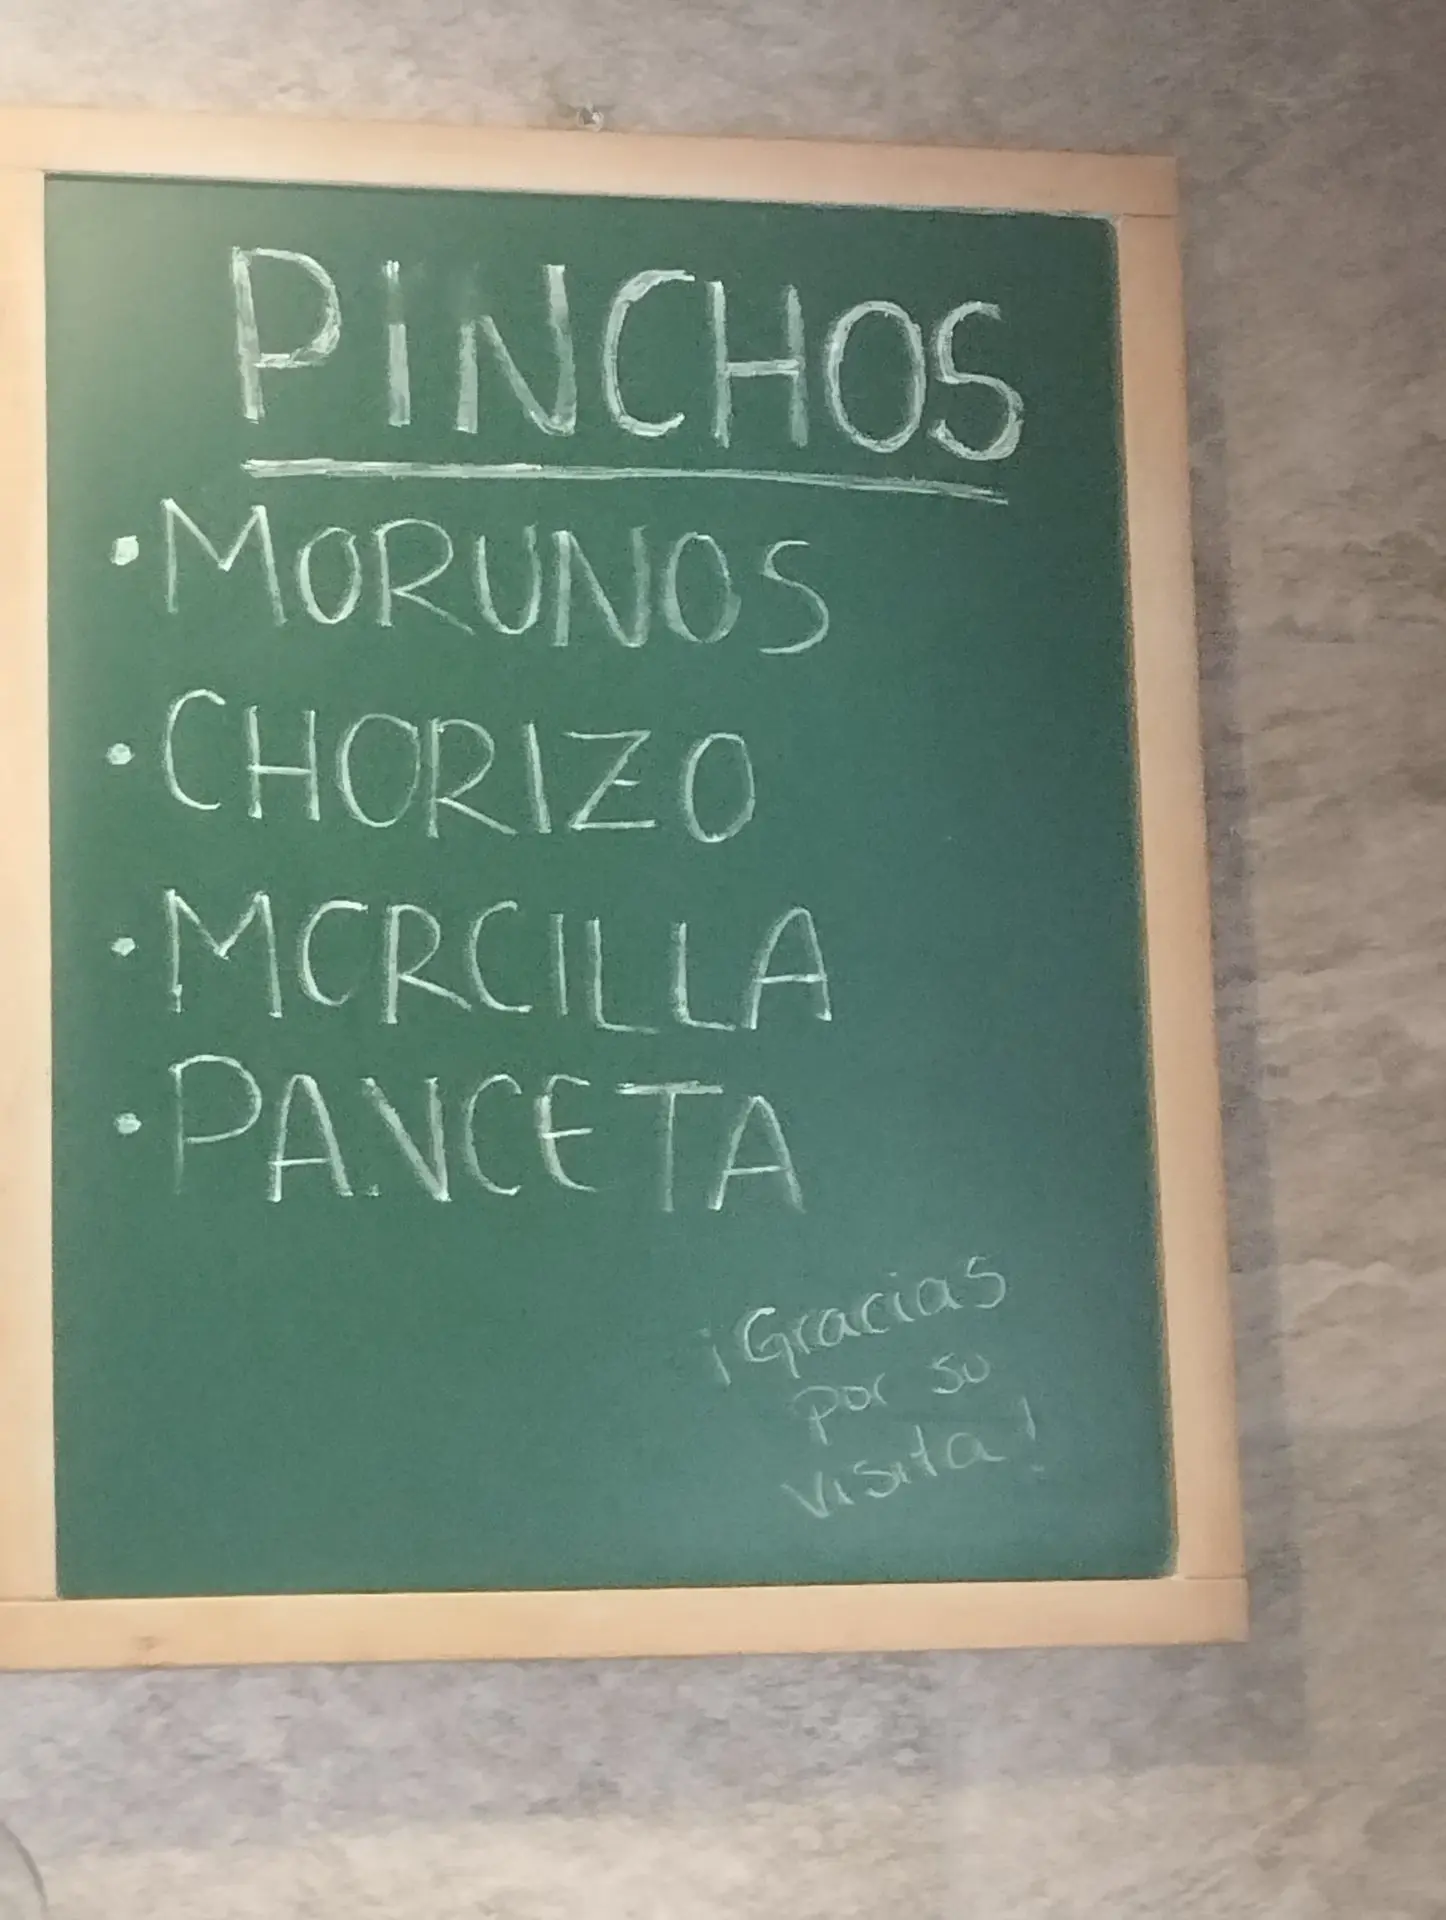 PINCHOS
• MORUNOS
• CHORIZO
• MORCILLA
• PANCETA
¡Gracias
por su
visita!